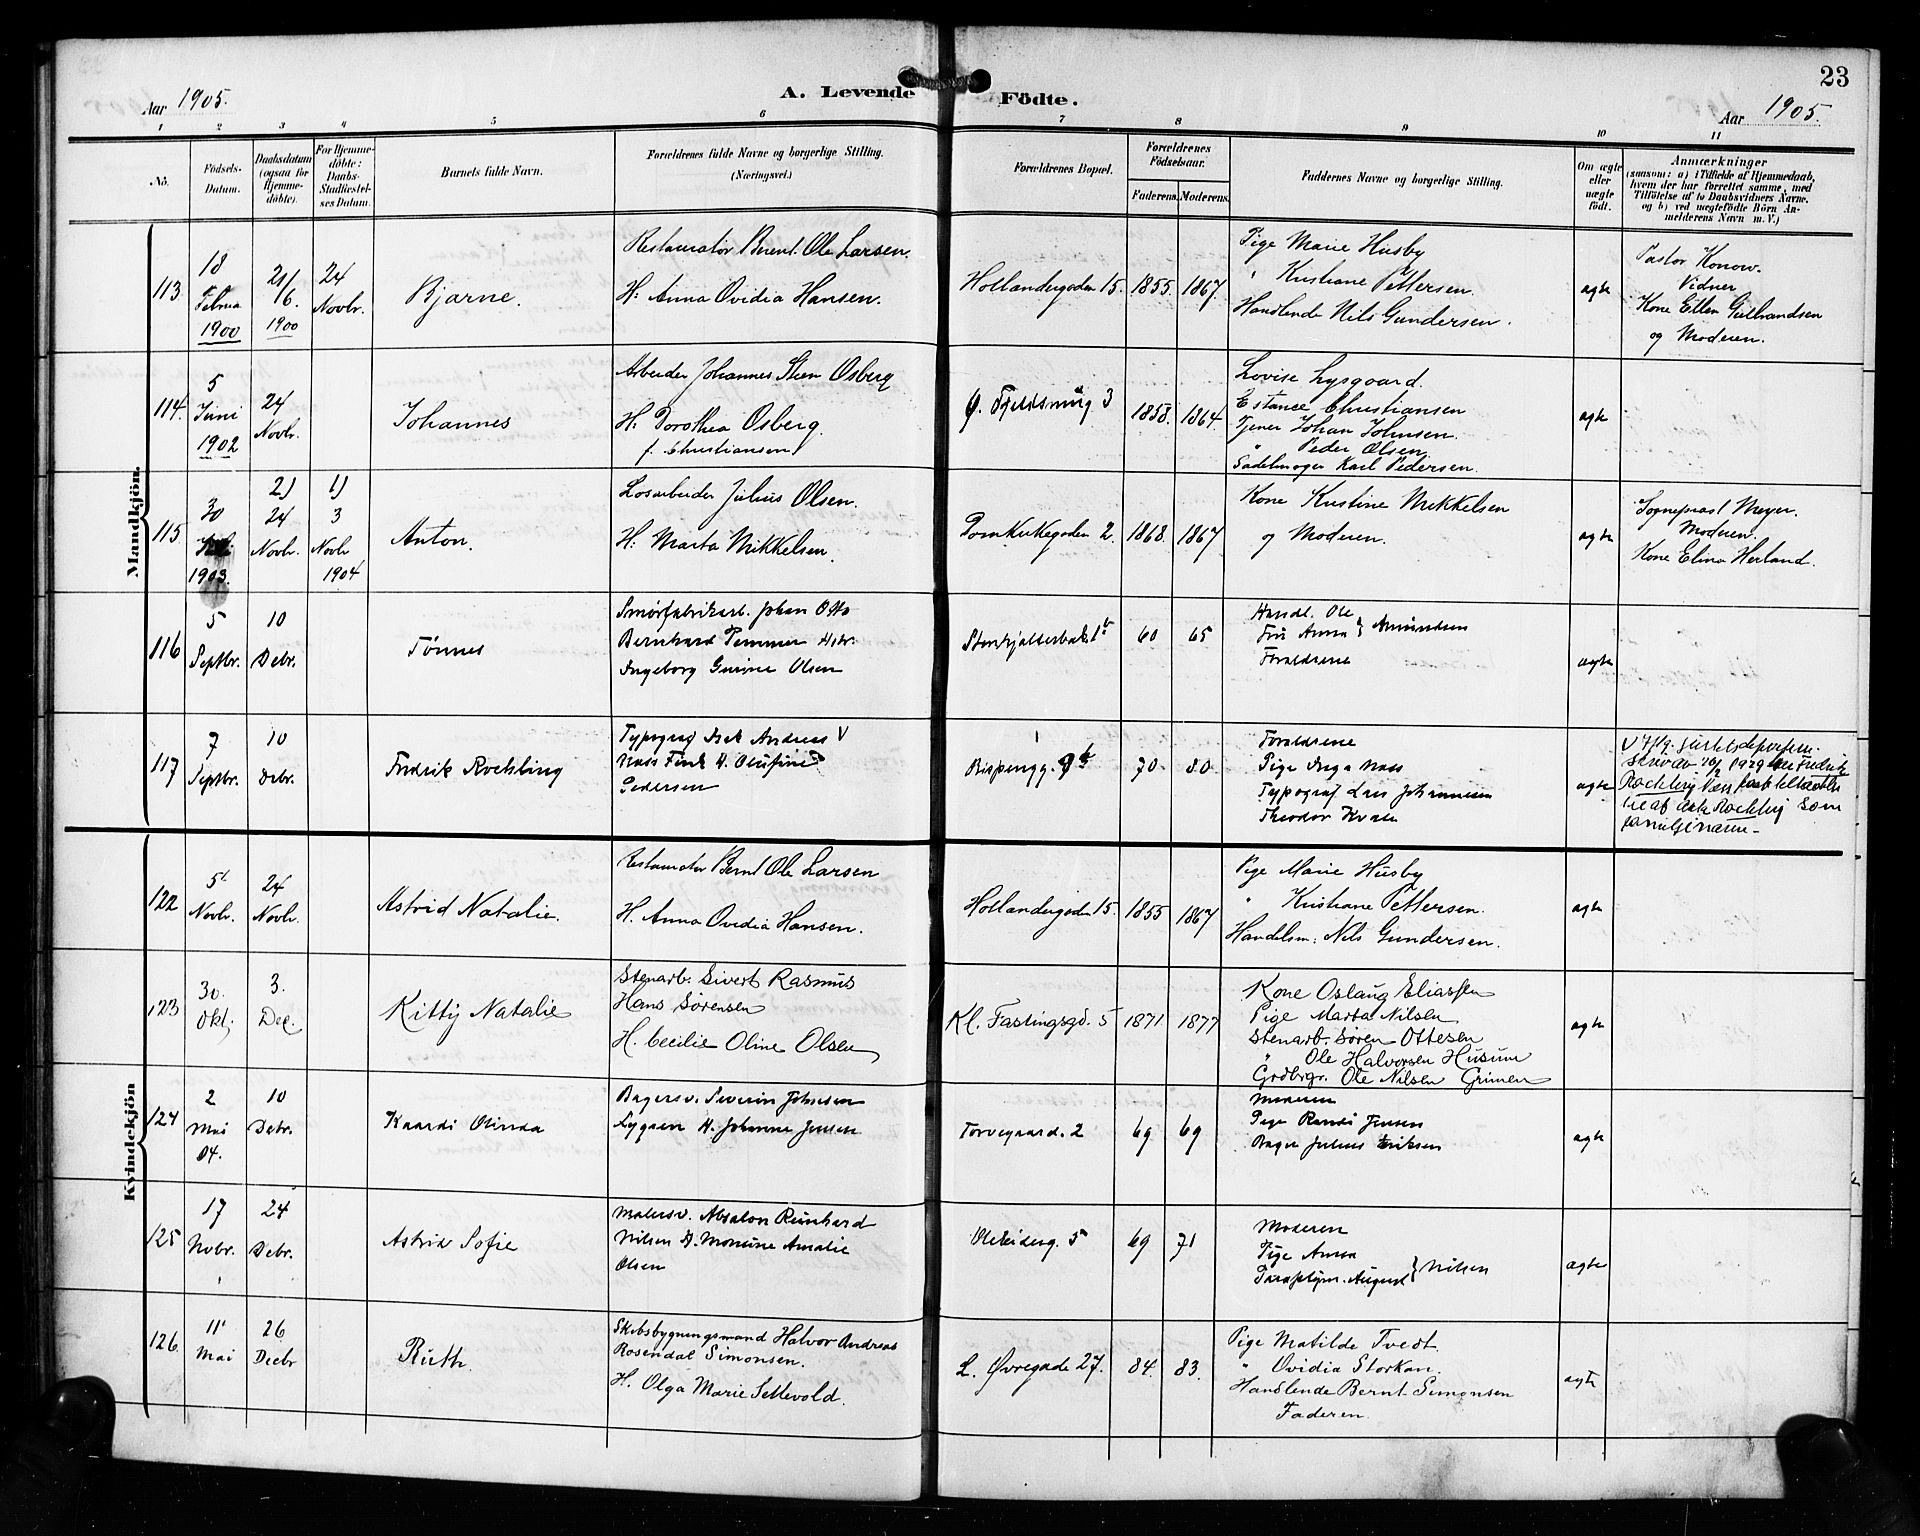 23
Aar 1905.
A. Levende Födte.
Aar 1905.
1 2 3 4 5 6 7 8 9 10 11
No.
Födsels-
Datum.
Daabsdatum
(ogsaa for
Hjemme-
döbte).
For Hjemme-
döbte:
Daabs-
Stadfæstel-
ses Datum.
Barnets fulde Navn.
Forældrenes fulde Navne og borgerlige Stilling.
(Næringsvei.)
Forældrenes Bopæl.
Forældrenes
Födselsaar.
Faderens. Moderens.
Faddernes Navne og borgerlige Stilling.
Om ægte
eller
uægte
födt.
Anmærkninger
(saasom: a) i Tilfælde af Hjemmedaab,
hvem der har forrettet samme, med
Tilföielse af to Daabsvidners Navne.
og b) ved uægtefödte Börn An-
melderens Navn m. V.)
Mandkjön.
113.
18
Februa
1900
21/
6.
1900
24
Novbr.
Bjarne.
Restauratør Bernt Ole Larsen.
H: Anna Ovidia Hansen.
Hollendergaden 15.
1855. 1867.
Pige Marie Husby
" Kristiane Pettersen.
Handlende Nils Gundersen.
ægte
Pastor Konow.
Vidner
Kone Ellen Gulbrandsen
og Moderen.
114.
5
Juni
1902
24
Novbr.
Johannes
Arbeider Johannes Steen Osberg
H: Dorothea Osberg.
f. Christiansen
3
1858. 1864.
Lovise Lysgaard.
Christiansen
Tjener Johan Johnsen.
" Peder Olsen
Sadelmager Karl Pedersen.
ægte
115.
30
1903.
2)
24
Novbr.
1)
3
Novbr
1904
Anton.
Losarbeider Julius Olsen.
H: Marta Mikkelsen.
Domkirkegaden 2.
1868. 1867
Kone Kristine Mikkelsen
og Moderen.
ægte
Sogneprest Meyer.
Moderen.
Kone Elina Herland.
116
5
Septbr.
10
Debr.
Tønnes
Smørfabrikarb. Johan Otto
Bernhard Pemmer H.
Ingeborg Gurine Olsen
60 65
Handl. Ole
Fru Anna } Amundsen
Forældrene
ægte
117
7
Septbr.
10
Debr.
Fredrik Rochling
Typograf Andreas
Næss H. Olufine
Pedersen
Bispengg. 9b
70. 80.
Forældrene
Pige Inga Næss
Typograf Lars Johannesen
Theodor
ægte
1929 Fredrik
Rochling
Rochling som
familienavn.
Kvindekjön
122
5
Novbr.
24
Novbr.
Astrid Natalie.
Restauratør Bernt Ole Larsen
H. Anna Ovidia Hansen.
Hollendergaden 15.
1855 1867
Pige Marie Husby
" Kristiane Pettersen.
Handelsm: Nils Gundersen.
ægte
123
30.
Okt;
3.
Dec.
Kitty Natalie
Stenarb. Sivert Rasmus
Hans Sørensen
H. Cecilie Oline Olsen
Kl. Fastingsgd. 5
1871 1877
Kone Oslaug Eliassen
Pige Marta Nilsen
Stenarb. Søren Ottesen
" Ole Halvorsen Husum
Grdbrgr. Ole Nilsen Grimen
ægte
124
2
Mai
04.
10
Debr.
Kaardi Olinda
Bagersv. Severin Johnsen
Lygren H. Johanne Jensen
Torvegaard. 2
69 69
Moderen
Pige Randi Jensen
Bager Julius Eriksen
ægte
125
17
Nobr.
24
Debr.
Astrid Sofie
Malersv. Absalon Reinhard
Nilsen H. Monsine Amalie
Olsen
5
69 71
Moderen
Pige Anna
August } Nilsen
ægte
126.
11
Mai
26
Decbr
Ruth.
Skibsbygningsmand Halvor Andreas
Rosendal Simonsen.
H. Olga Marie Settevold.
L. Øvregade 27.
84. 83.
Pige Matilde Tvedt.
" Ovidia Storkan.
Handlende Bernt Simonsen
Faderen.
ægte